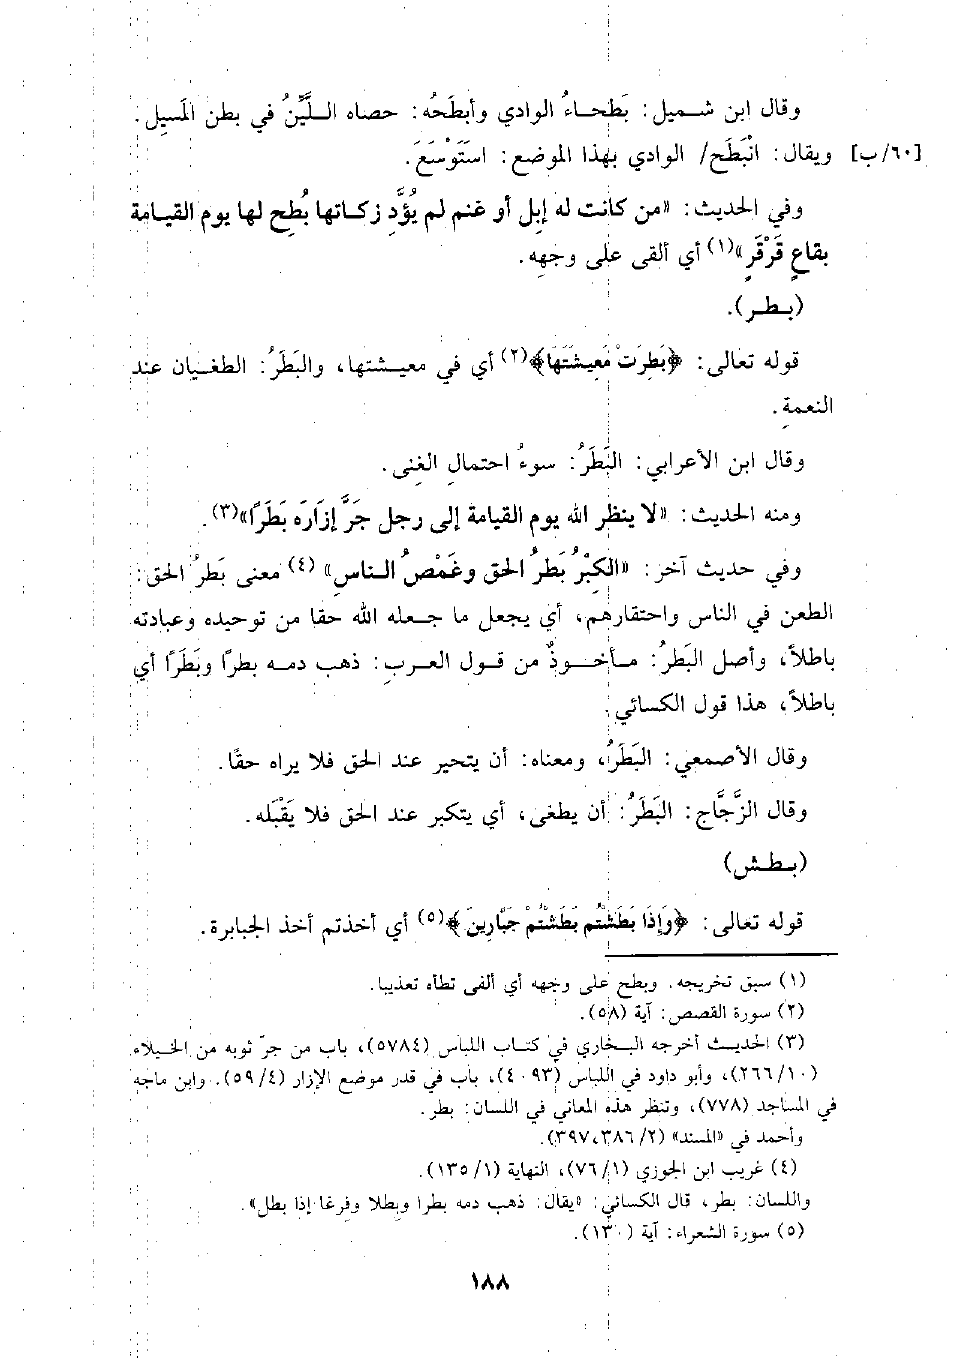 وقال ابن شميل: بَطحاءُ الوادي وأبطَحُه: حصاه اللَّيِّنُ في بطن المَسِيل.
[٦٠/ب] ويقال: انْبَطَح/ الوادي بهذا الموضع: اسْتَوْسَعَ.
وفي الحديث: «من كانت له إبل أو غنم لم يُؤَدِ زكاتها بُطِح لها يوم القيامة
بقاعٍ قَرْقَرٍ»(١) أي ألقى على وجهِه.
(بطر).
قوله تعالى: ﴿بَطِرَتْ مَعِيشَتَهَا﴾(٢) أي في معيشتها، والبَطَرُ: الطغيان عند
النعمةِ.
وقال ابن الأعرابي: البَطَرُ: سوءُ احتمالِ الغِنى.
ومنه الحديث: «لا ينظر الله يوم القيامة إلى رجل جَرَّ إزَارَه بَطَرًا»(٣).
وفي حديث آخر: «الكِبْرُ بَطَرُ الحق وغَمْصُ الناس» (٤) معنى بَطرُ الحق:
الطعن في الناس واحتقارهم، أي يجعل ما جعله الله حقا من توحيده وعبادته
باطلاً، وأصل البَطرُ: مأخوذٌ من قول العرب: ذهب دمه بطرًا وبَطَرًا أي
باطلاً، هذا قول الكسائي.
وقال الأصمعي: البَطَرُ، ومعناه: أن يتحير عند الحق فلا يراه حقًا.
وقال الزَّجَّاج: البَطَرُ: أن يطغى، أي يتكبر عند الحق فلا يَقْبَله.
(بطش)
قوله تعالى: ﴿وَإِذَا بَطَشْتُم بَطَشْتُمْ جَبَّارِينَ﴾(٥) أي أخذتم أخذ الجبابرة.
(١) سبق تخريجه. وبطح على وجهه أي ألقى تطأه تعذيبا.
(٢) سورة القصص: آية (٥٨).
(٣) الحديث أخرجه البخاري في كتاب اللباس (٥٧٨٤)، باب من جرّ ثوبه من الخيلاء
(٢٦٦/١٠)، وأبو داود في اللباس (٤٠٩٣)، باب في قدر موضع الإزار (٥٩/٤). وابن ماجه
في المساجد (٧٧٨)، وتنظر هذه المعاني في اللسان: بطر.
وأحمد في «المسند» (٣٩٧،٣٨٦/٢).
(٤) غريب ابن الجوزي (٧٦/١)، النهاية (١٣٥/١).
واللسان: بطر، قال الكسائي: «يقال: ذهب دمه بطرا وبطلا وفرغا إذا بطل».
(٥) سورة الشعراء: آية (١٣٠).
١٨٨